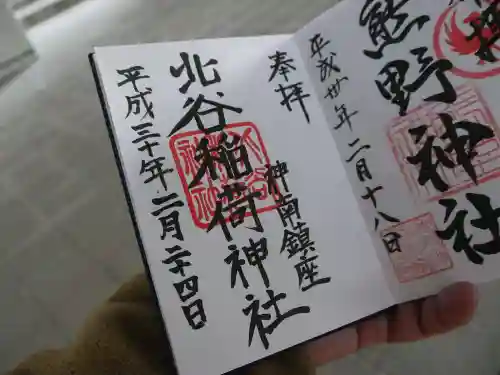 奉拝
神南鎮座
北谷稲荷神社
平成三十年二月二十四日
熊野神社
平成卅年二月十八日